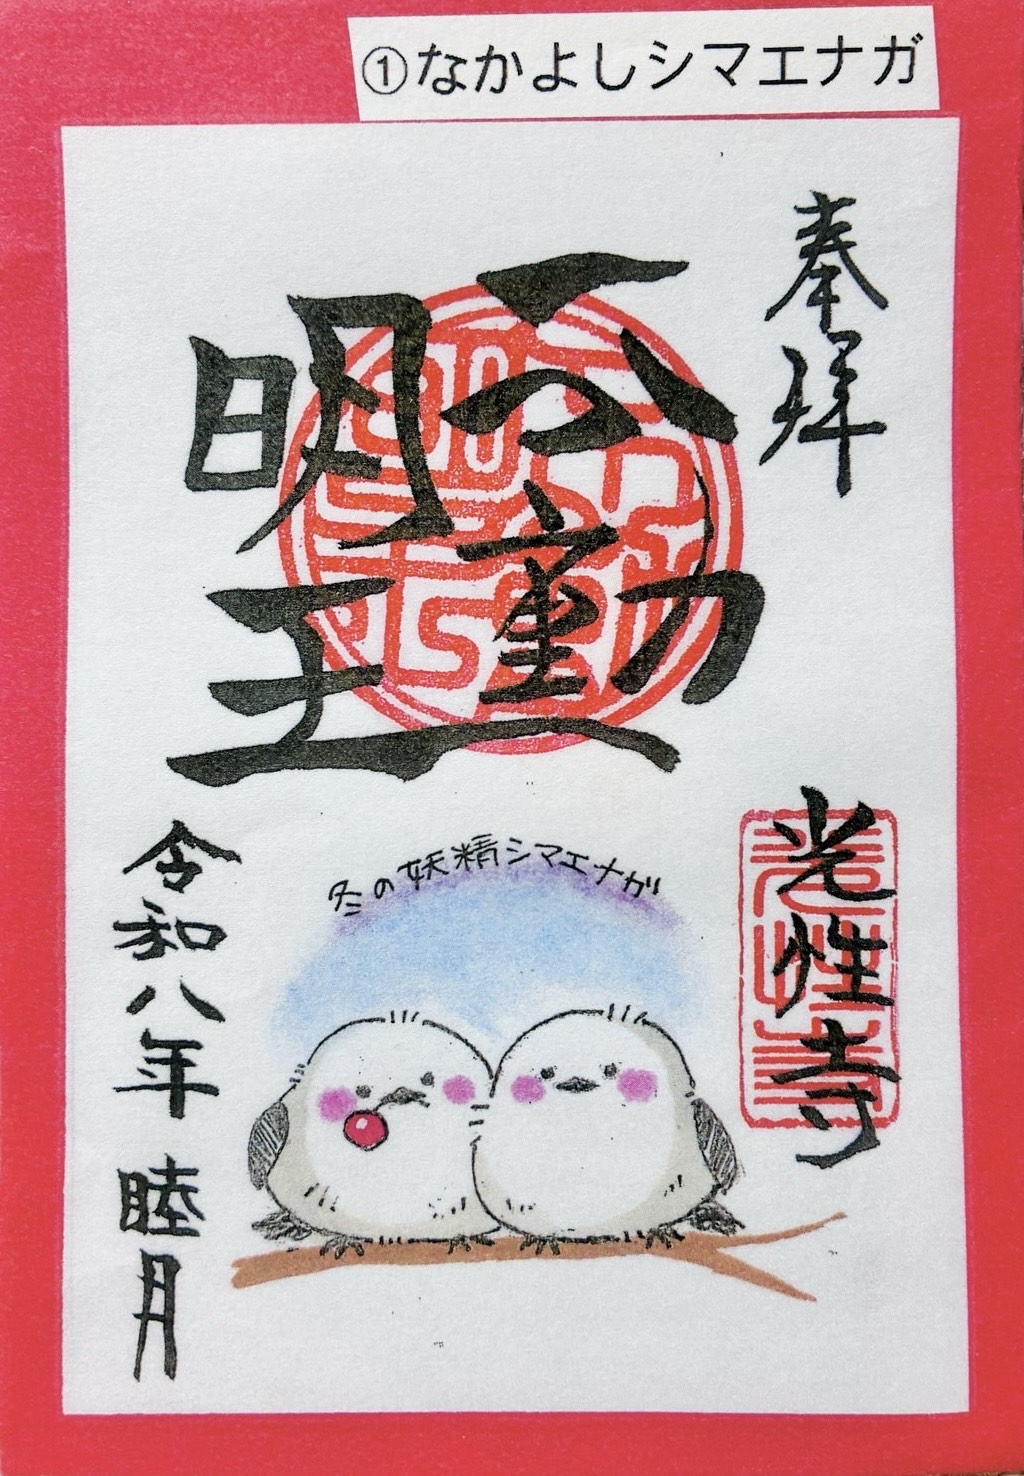 ①なかよしシマエナガ
奉拝
不動
明王
光性寺
冬の妖精シマエナガ
令和八年 睦月